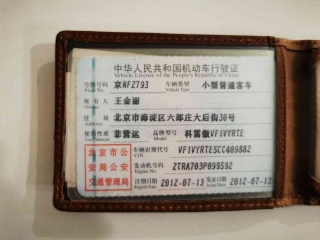 中华人民共和国机动车行驶证
Vehicle License of the People's Republic of China
号牌号码 京NFZ793 车辆类型 小型普通客车
Plate No. Vehicle Type
所有人 王金丽
Owner
住址 北京市海淀区六郎庄大后街30号
Address
使用性质 非营运 品牌型号 科雷傲VF1VYRTE
北京市公安局公安交通管理局
车辆识别代号 VF1VYRTESCC409882
VIN
发动机号码 2TRA703P099592
Engine No.
注册日期 2012-07-13 发证日期 2012-07-13
Register Date Issue Date